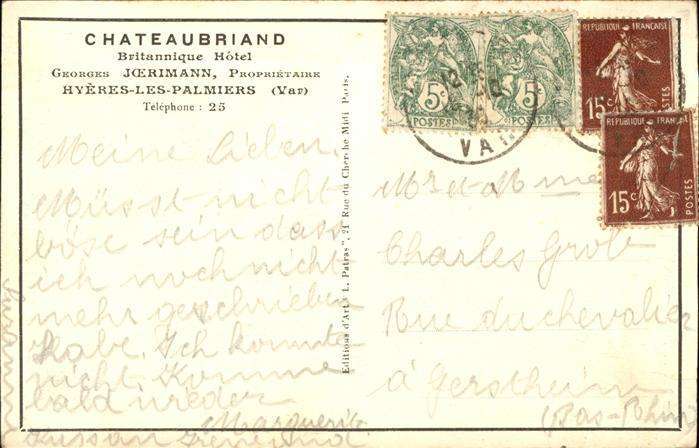 CHATEAUBRIAND
Britannique Hôtel
GEORGES JŒRIMANN, PROPRIÉTAIRE
HYÈRES-LES-PALMIERS (Var)
Téléphone : 25
Meine Lieben.
Müsst nicht
böse sein dass
ich noch nicht
mehr geschrieben
habe. Ich konnte
nicht. Komme
bald wieder
Marguerite
Editions d'Art "L. Patras", 21 Rue du Cherche Midi Paris.
5c
POSTES
5c
POSTES
REPUBLIQUE FRANÇAISE
15c
POSTES
REPUBLIQUE FRANÇAISE
15c
POSTES
12
VAR
Mr et Mme
Charles Grob
Rue du chevalier
à Gerstheim
(Bas-Rhin)